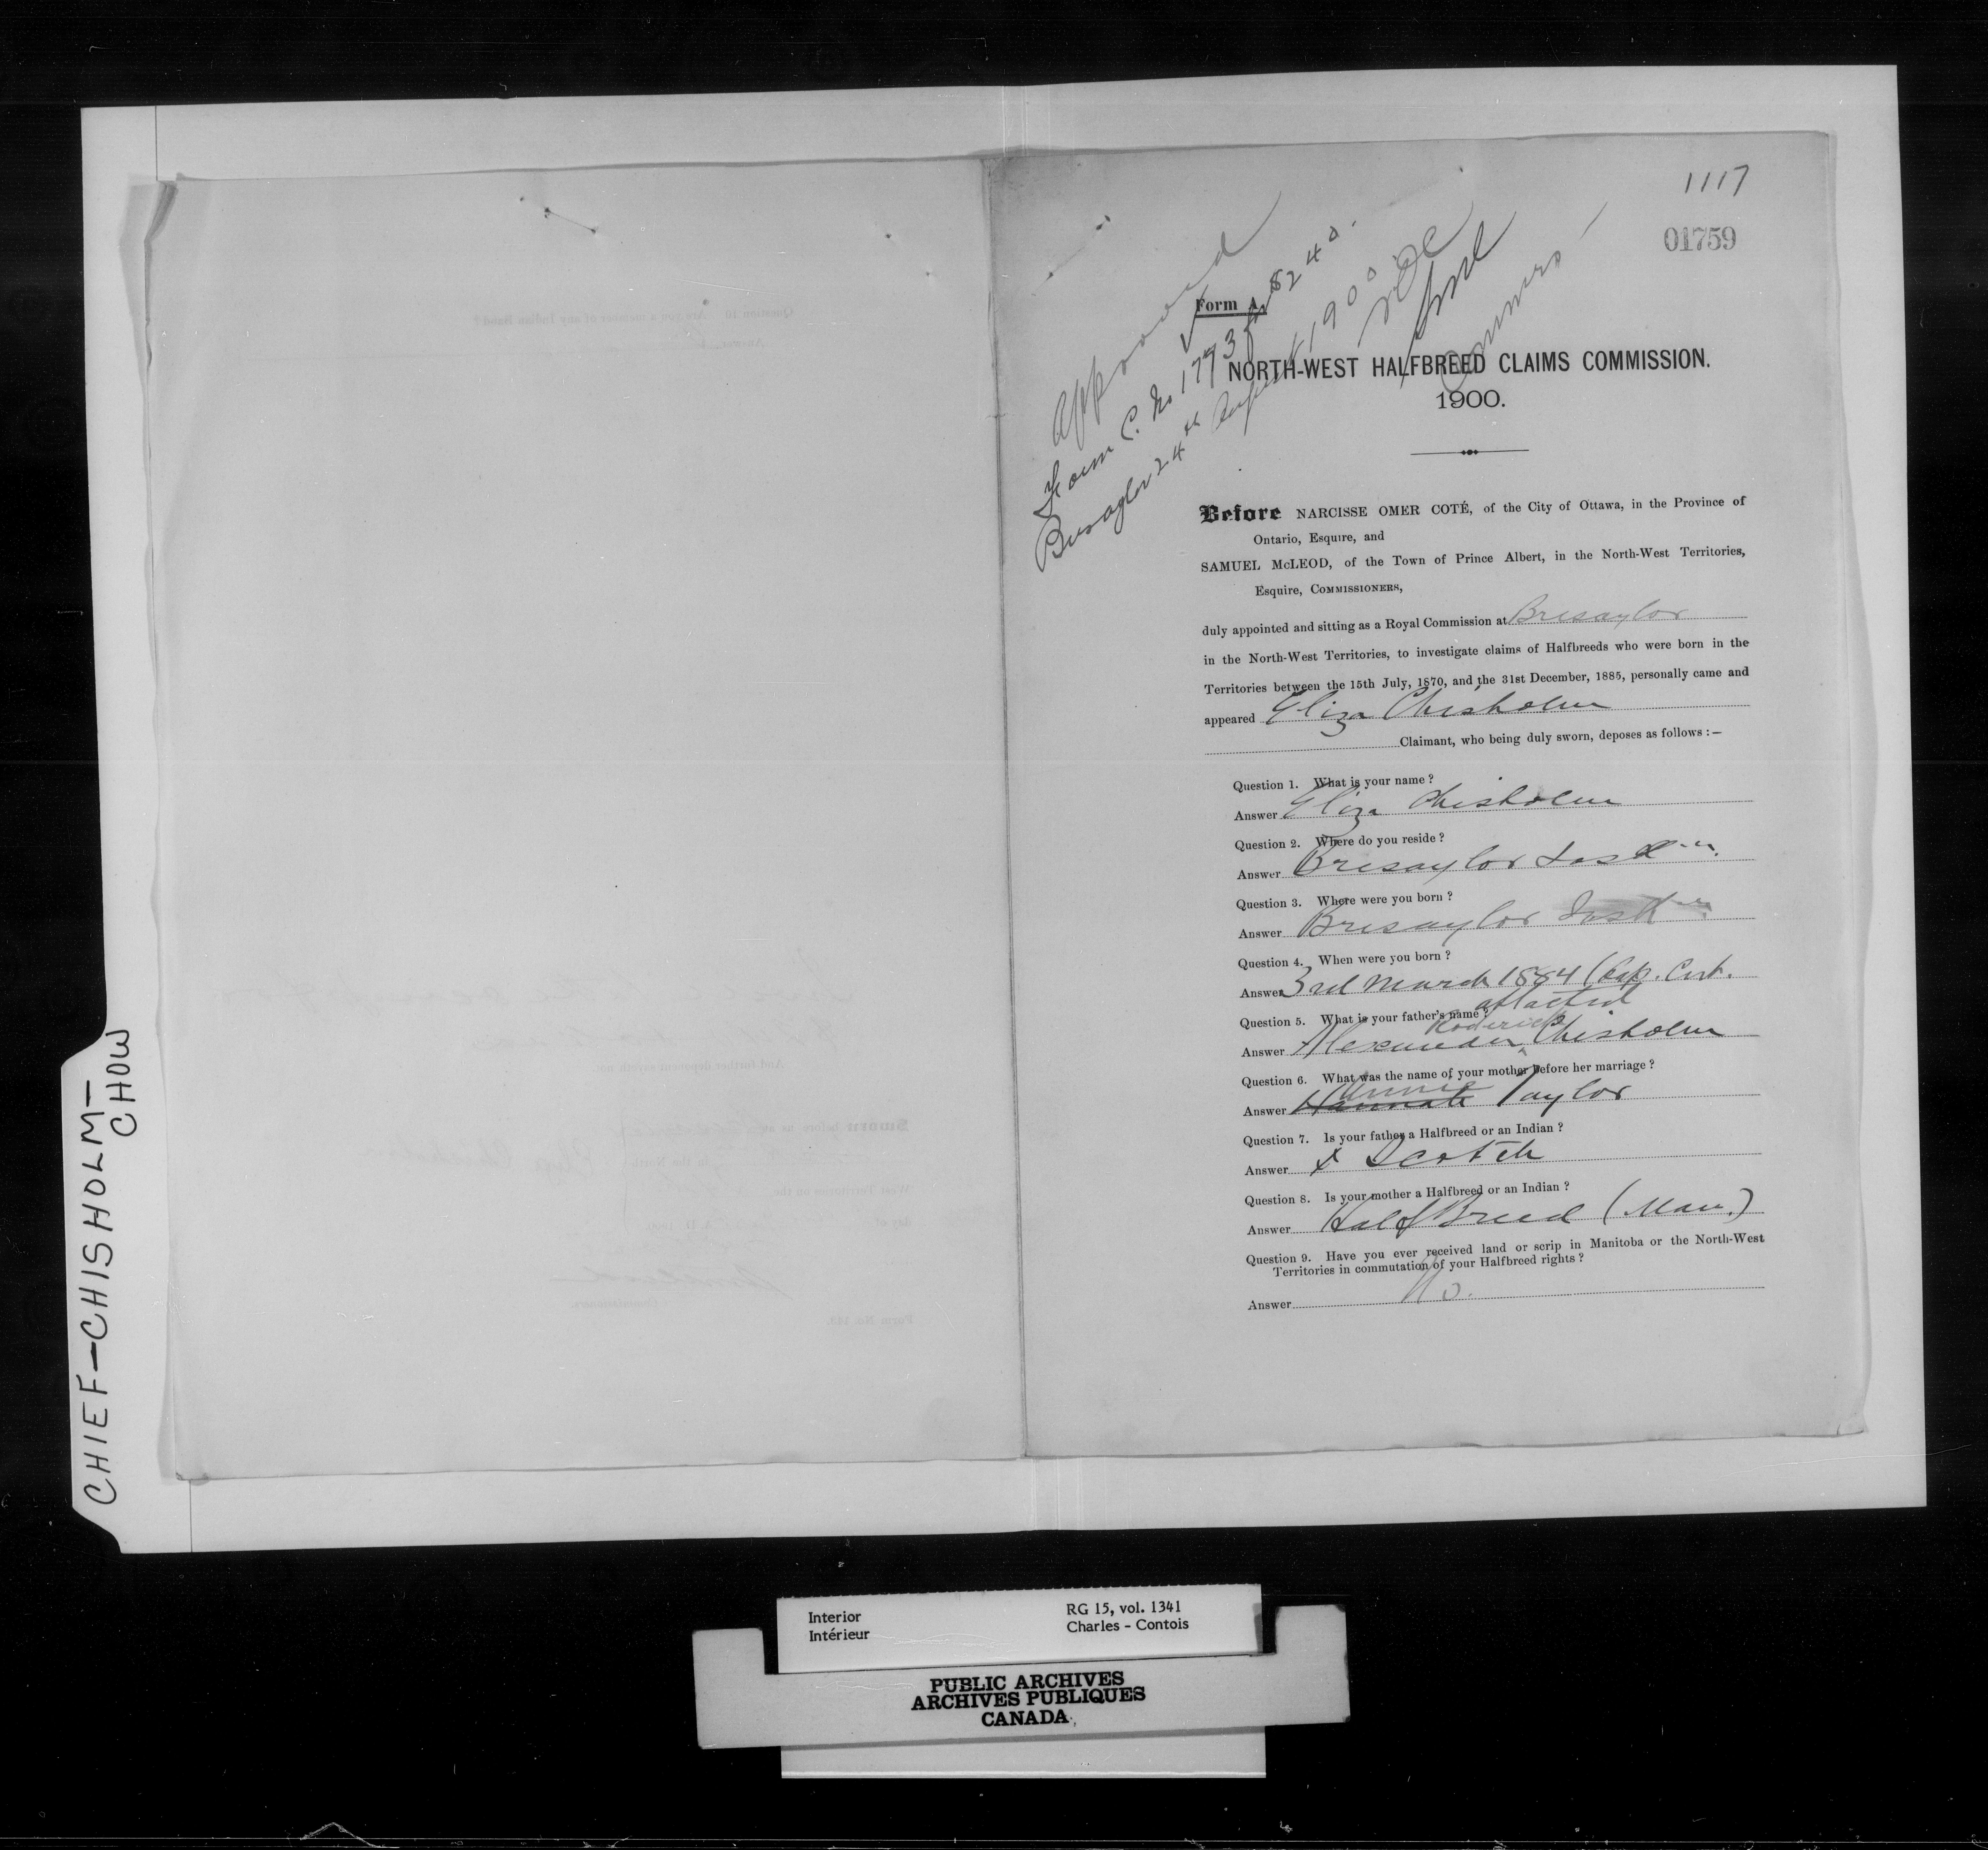 1117
01759
Approved
Form C. No 1773 for $240.
Bresaylor 24th August 1900
N.O.C.
Commrs
Form A.
NORTH-WEST HALFBREED CLAIMS COMMISSION.
1900.
Before NARCISSE OMER COTÉ, of the City of Ottawa, in the Province of
Ontario, Esquire, and
SAMUEL McLEOD, of the Town of Prince Albert, in the North-West Territories,
Esquire, COMMISSIONERS,
duly appointed and sitting as a Royal Commission at Bresaylor
in the North-West Territories, to investigate claims of Halfbreeds who were born in the
Territories between the 15th July, 1870, and the 31st December, 1885, personally came and
appeared Eliza Chisholm
Claimant, who being duly sworn, deposes as follows :—
Question 1. What is your name ?
Answer Eliza Chisholm
Question 2. Where do you reside ?
Answer Bresaylor Sask
Question 3. Where were you born ?
Answer Bresaylor Sask
Question 4. When were you born ?
Answer 3rd March 1884 (Bap. Cert.
attached
Question 5. What is your father's name ?
Roderick
Answer Alexander Chisholm
Question 6. What was the name of your mother before her marriage ?
Annie
Answer Hannah Taylor
Question 7. Is your father a Halfbreed or an Indian ?
Answer x Scotch
Question 8. Is your mother a Halfbreed or an Indian ?
Answer Half Breed (Man.)
Question 9. Have you ever received land or scrip in Manitoba or the North-West
Territories in commutation of your Halfbreed rights ?
Answer No.
CHIEF—CHISHOLM—
CHOW
Interior
Intérieur
RG 15, vol. 1341
Charles - Contois
PUBLIC ARCHIVES
ARCHIVES PUBLIQUES
CANADA